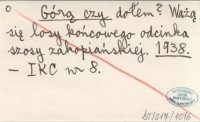 o Górą czy dołem? Ważą
się losy końcowego odcinka
szosy zakopiańskiej. 1938.
– IKC nr 8.
bT/014/1016